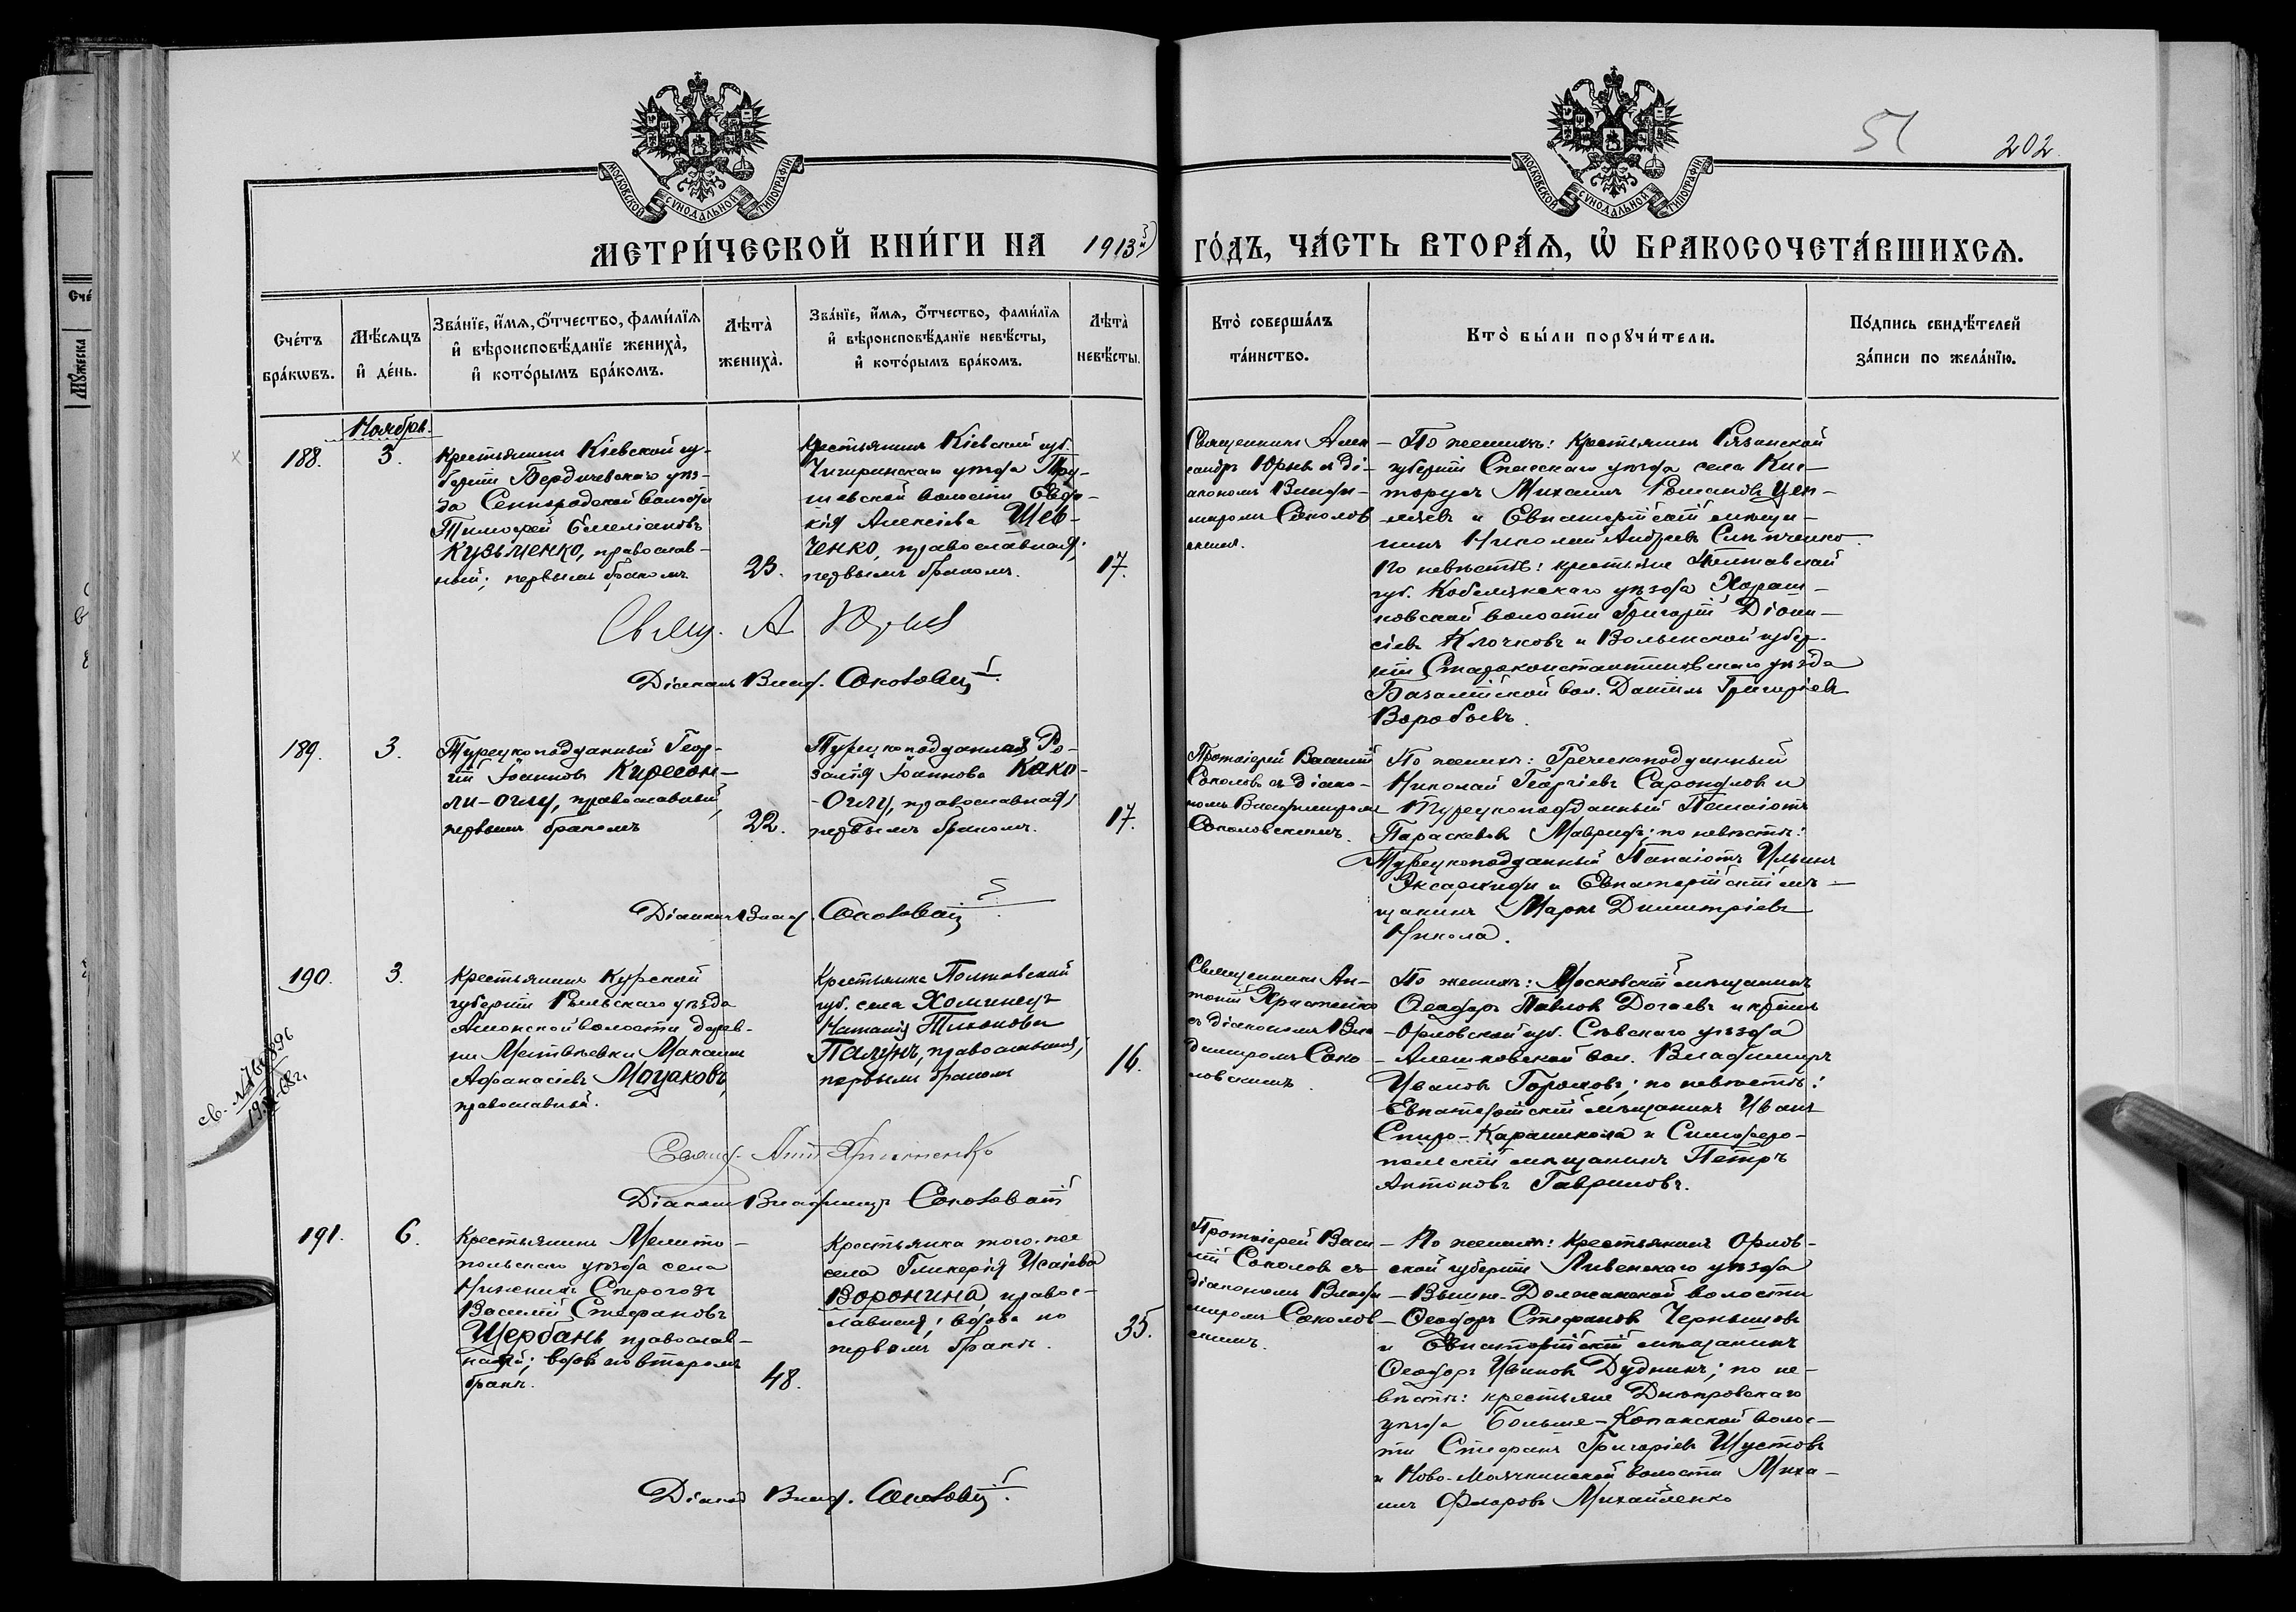 51
202.
МОСКОВСКОЙ СѴНОДАЛЬНОЙ ТИПОГРАФІИ
МОСКОВСКОЙ СѴНОДАЛЬНОЙ ТИПОГРАФІИ
МЕТРИ́ЧЕСКОЙ КНИ́ГИ НА 1913й ГО́ДЪ, ЧА́СТЬ ВТОРА́Я, Ѡ҆ БРАКОСОЧЕТА́ВШИХСѦ.
Сче́тъ
бра́кѡвъ.
Мѣ́сяцъ
и҆ де́нь.
Зва́нїе, и҆́мя, ѻ҆́тчество, фами́лїя
и҆ вѣроисповѣ́данїе жениха̀,
и҆ кото́рымъ бра́комъ.
Лѣта̀
жениха̀.
Зва́нїе, и҆́мя, ѻ҆́тчество, фами́лїя
и҆ вѣроисповѣ́данїе невѣ́сты,
и҆ кото́рымъ бра́комъ.
Лѣта̀
невѣ́сты.
Кто̀ соверша́лъ
та́инство.
Кто̀ бы́ли порꙋчи́тели.
По́дпись свидѣ́телей
за́писи по жела́нїю.
Ноябрь.
188.
3.
Крестьянинъ Кіевской гу-
берніи Бердичевскаго уѣз-
да волости
Тимофей Емеліановъ
Кузьменко, православ-
ный; первымъ бракомъ
23.
Крестьянка Кіевской губ.
Чигиринскаго уѣзда Тру-
шевской волости Евдо-
кія Алексіева Шев-
ченко, православная;
первымъ бракомъ.
17.
Священникъ Алек-
сандръ Юрьев съ ді-
акономъ Влади-
миромъ Соколов
скимъ.
По женихѣ: крестьянинъ Рязанской
губерніи Спасскаго уѣзда села Кис-
торусъ Михаилъ Романовъ
и Евпаторійскій мѣща-
нинъ Николай Андреевъ
по невѣстѣ: крестьяне Полтавской
губ. Кобелякскаго уѣзда
волости Григорій Діони-
сіевъ Клочковъ и Волынской губер-
ніи Староконстантиновскаго уѣзда
Базалійской вол. Даніилъ Григоріевъ
Воробьевъ.
Свящ. А Юрьев
Діаконъ Влад. Соколовскій.
189.
3.
Турецкоподданный Геор-
гій Іоанновъ Кирсон-
ли-Оглу, православный,
первымъ бракомъ
22.
Турецкоподданная Ро-
залія Іоаннова Како-
-Оглу, православная;
первымъ бракомъ.
17.
Протоіерей Василій
Соколовъ съ діако-
номъ Владимиромъ
Соколовскимъ.
По женихѣ: Греческоподданный
Николай Георгіевъ и
Турецкоподданный Панаіотъ
Параскевовъ; по невѣстѣ:
Турецкоподданный Панаіотъ Ильинъ
и Евпаторійскій мѣ-
щанинъ Маркъ Димитріевъ
Никола.
Діаконъ Влад. Соколовскій.
190.
3.
Крестьянинъ Курской
губерніи Рыльскаго уѣзда
волости дерев-
ни Матвѣевки Максимъ
Афанасіевъ Моцаковъ,
православный.
Крестьянка Полтавской
губ. села Хоминецъ
Наталія Тихонова
православная;
первымъ бракомъ
16.
Священникъ Ан-
тоній Христенко
съ діакономъ Вла-
димиромъ Соко-
ловскимъ.
По женихѣ: Московскій мѣщанинъ
Ѳеодоръ Павловъ Догаевъ и кр-нинъ
Орловской губ. Сѣвскаго уѣзда
Алешковской вол. Владимиръ
Ивановъ Гороховъ; по невѣстѣ:
Евпаторійскій мѣщанинъ Иванъ
Спиро-Караникола и Симферо-
польскій мѣщанинъ Петръ
Антоновъ Гавриловъ.
Свящ. Ант. Христенко
Діаконъ Владимиръ Соколовскій
191.
6.
Крестьянинъ Мелито-
польскаго уѣзда села
Нижнихъ Сѣрогозъ
Василій Стефановъ
Щербань, православ-
ный; вдовъ по второмъ
бракѣ.
48.
Крестьянка того-же
села Гликерія Исаіева
Воронина, правос-
лавная; вдова по
первомъ бракѣ.
35.
Протоіерей Васи-
лій Соколовъ съ
діакономъ Влади-
миромъ Соколов-
скимъ.
По женихѣ: крестьянинъ Орлов-
ской губерніи Ливенскаго уѣзда
Вышне-Должанской волости
Ѳеодоръ Стефановъ Чернышовъ
и Евпаторійскій мѣщанинъ
Ѳеодоръ Ивановъ Дудникъ; по не-
вѣстѣ: крестьяне Днѣпровскаго
уѣзда Больше-Копанской волос-
ти Стефанъ Григоріевъ Шустовъ
и Ново-Маячкинской волости Миха-
илъ Флоровъ Михайленко
Діаконъ Влад. Соколовскій.